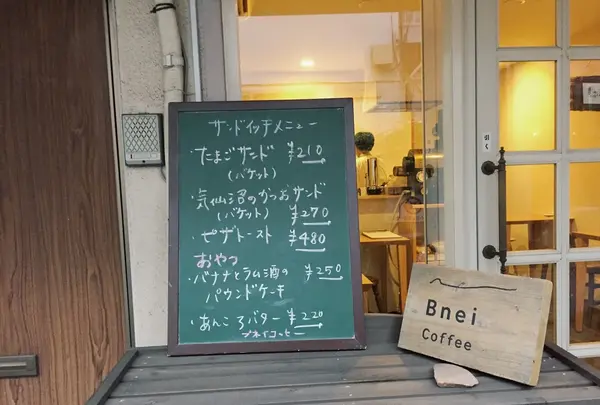 サンドイッチメニュー
・たまごサンド ¥210
(バケット)
・気仙沼のかつおサンド
(バケット) ¥270
・ピザトースト ¥480
おやつ
・バナナとラム酒の ¥250
パウンドケーキ
・あんころバター ¥220
ブネイコーヒー
引く
Bnei
Coffee